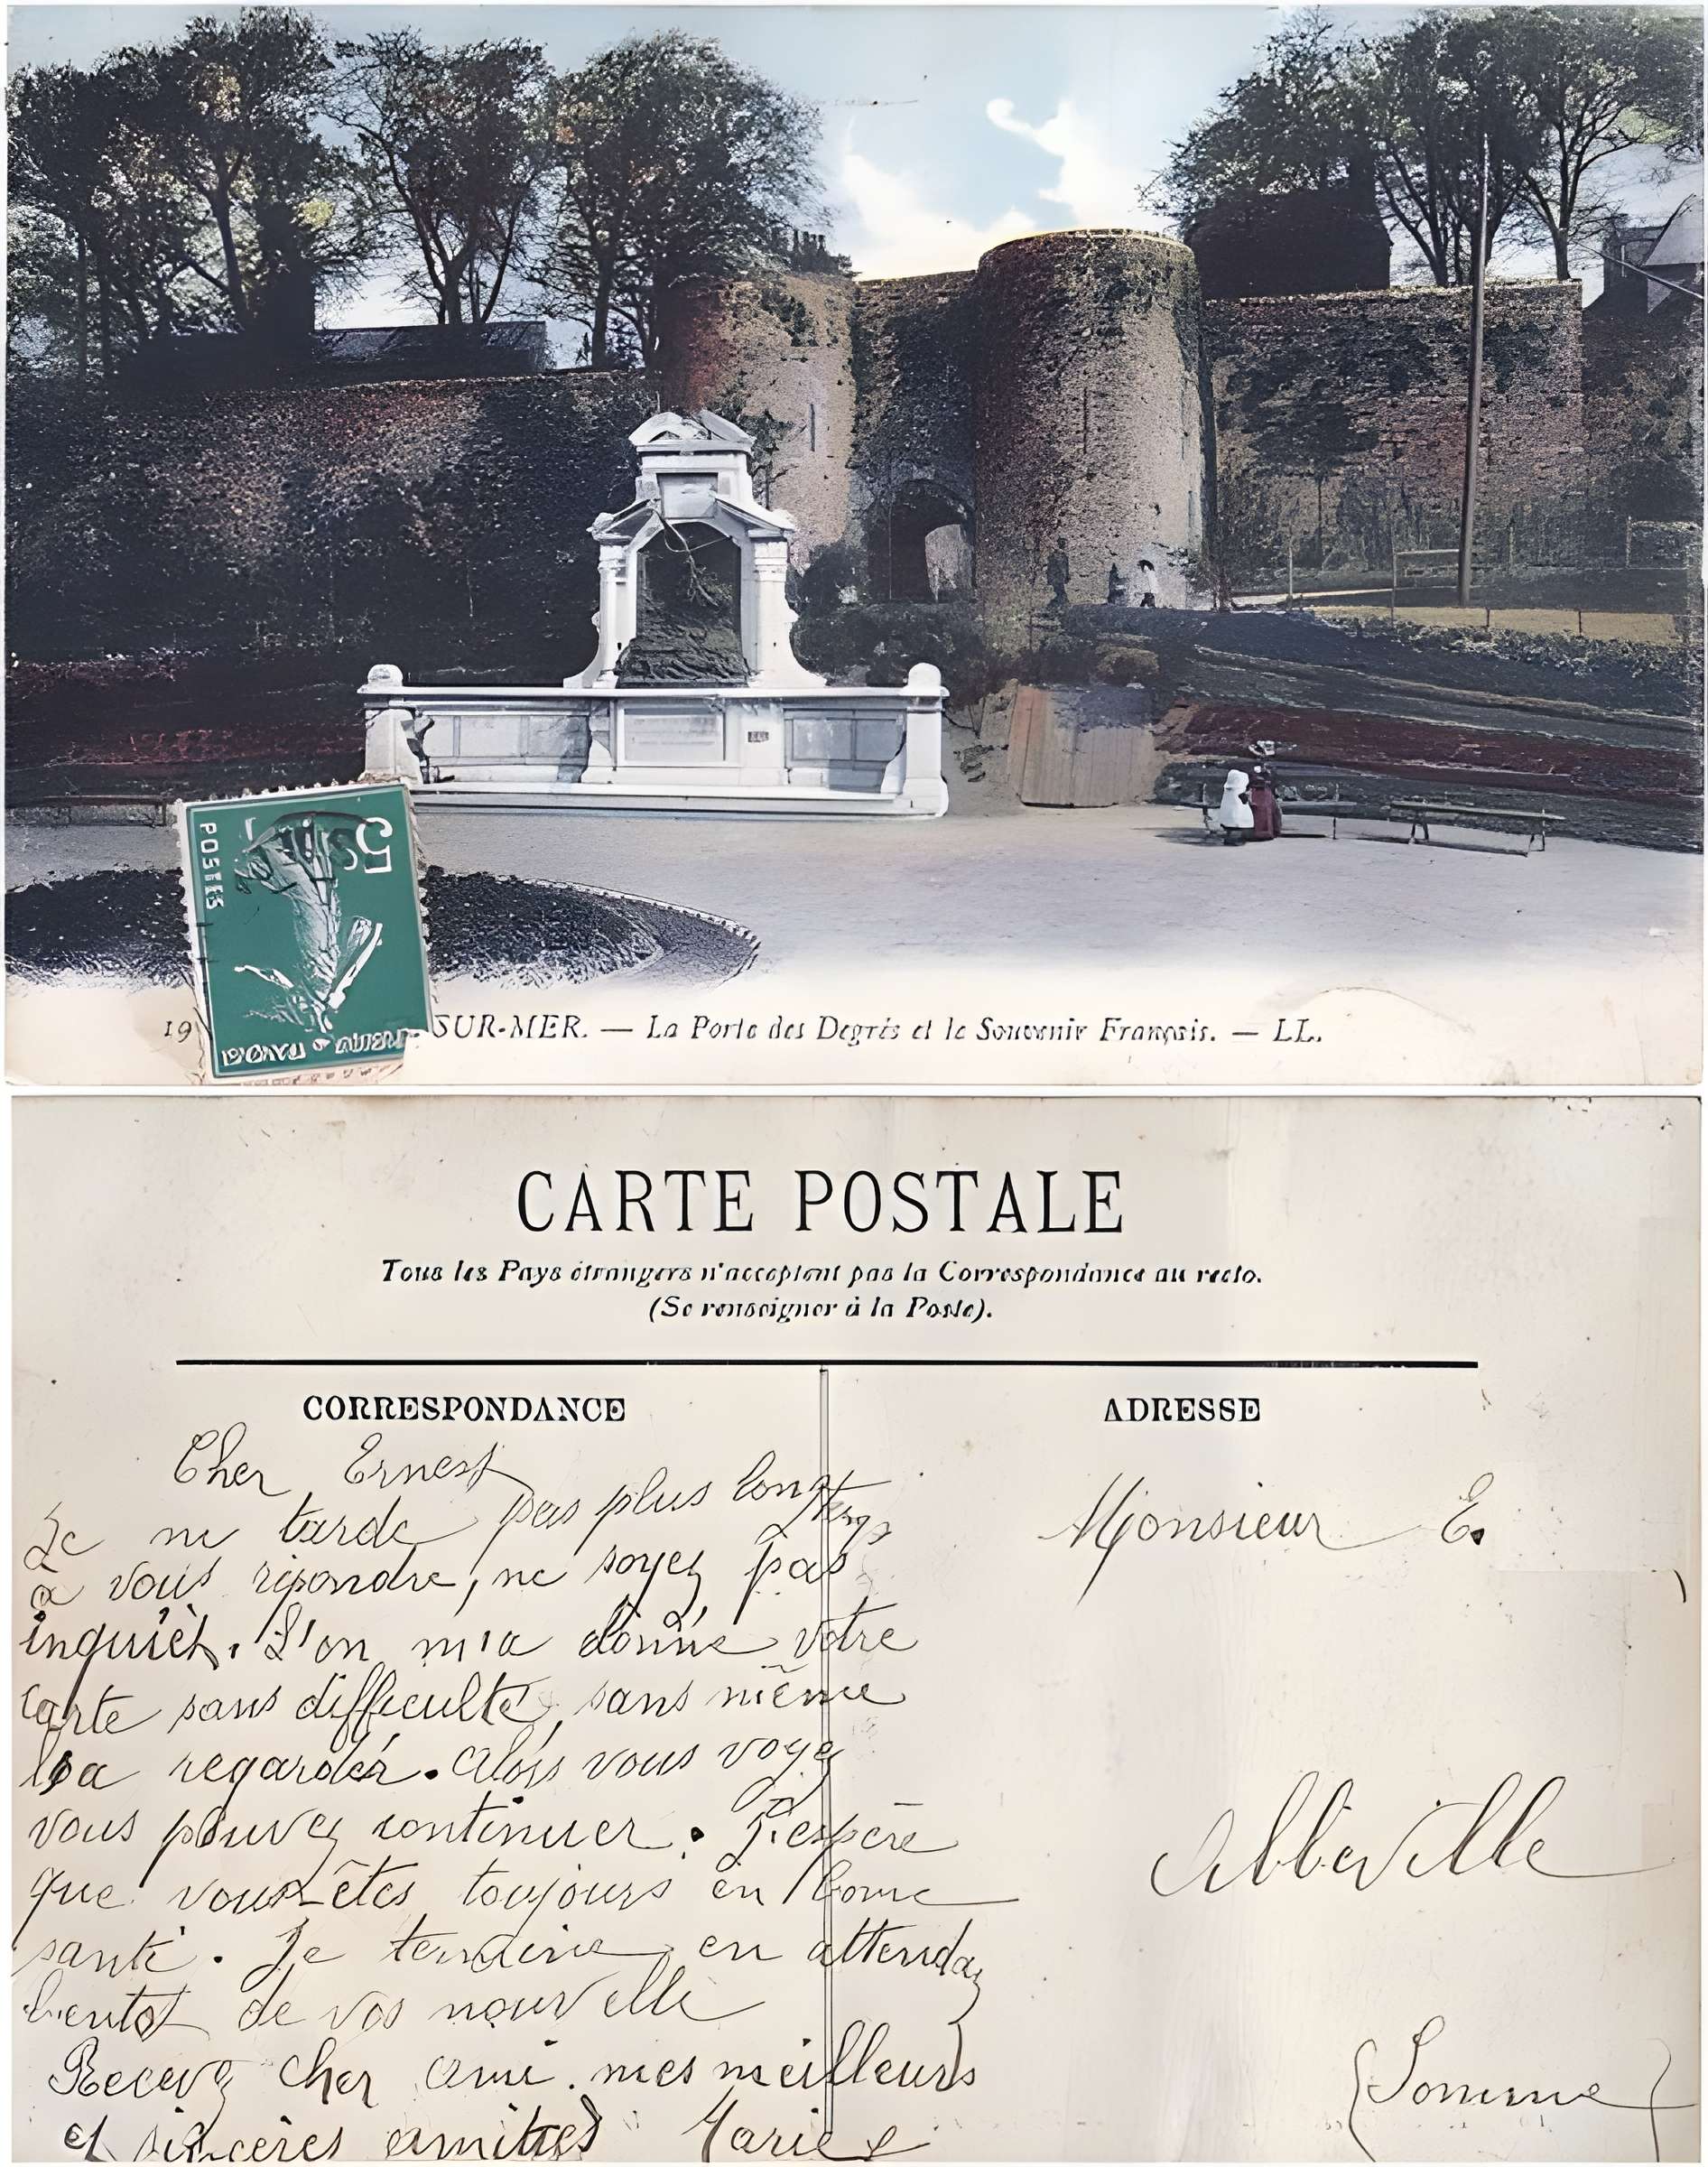 POSTES
5
19
SUR-MER. — La Porte des Degrés et le Souvenir Français. — LL.
CARTE POSTALE
Tous les Pays étrangers n'acceptent pas la Correspondance au recto.
(Se renseigner à la Poste).
CORRESPONDANCE
Cher Ernest
Je ne tarde pas plus longtemps
a vous répondre, ne soyez pas
inquièt. L'on m'a donné votre
carte sans difficulté, sans même
la regarder. Alors vous voyez
vous pouvez continuer. J'espère
que vous êtes toujours en bonne
santé. Je termine en attendaz
bientot de vos nouvelle
Recevez cher ami mes meilleurs
et sincères amitiés Marie
ADRESSE
Monsieur E.
Abbeville
(Somme)